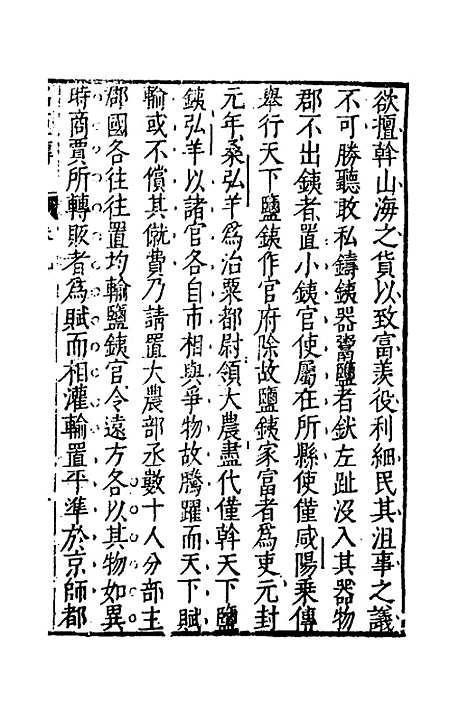 欲擅斡山海之貨以致富羨役利細民其沮事之議
不可勝聽敢私鑄銕器鬻鹽者釱左趾沒入其器物
郡不出銕者置小銕官使屬在所縣使僅咸陽乘傳
舉行天下鹽銕作官府除故鹽銕家富者為吏元封
元年桑弘羊為治粟都尉領大農盡代僅斡天下鹽
銕弘羊以諸官各自市相與爭物故騰躍而天下賦
輸或不償其僦費乃請置大農部丞數十人分部主
郡國各往往置均輸鹽銕官令遠方各以其物如異
時商賈所轉販者為賦而相灌輸置平準於京師都